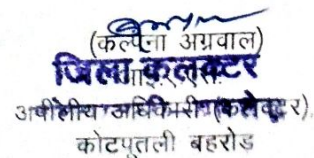 (कल्पना अग्रवाल)
जिला कलक्टर
अपीलीय अधिकारी (कलेक्टर)
कोटपुतली बहरोड